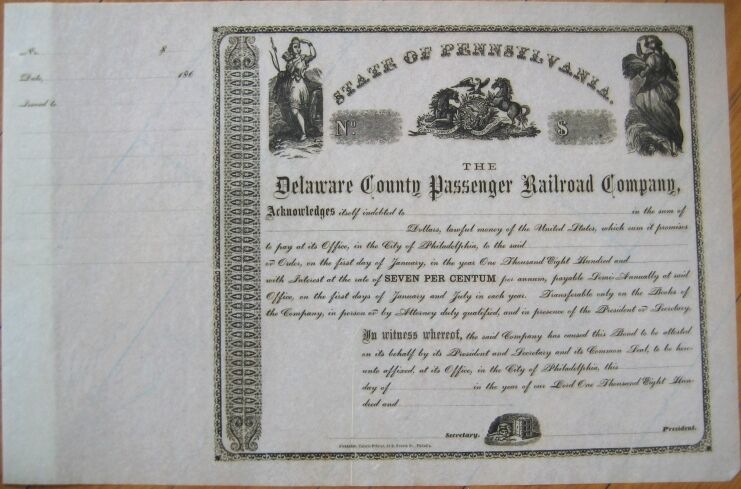 No. $
Date, 186
Issued to
STATE OF PENNSYLVANIA.
No $
THE
Delaware County Passenger Railroad Company,
Acknowledges itself indebted to in the sum of
Dollars, lawful money of the United States, which sum it promises
to pay at its Office, in the City of Philadelphia, to the said
or Order, on the first day of January, in the year One Thousand Eight Hundred and
with Interest at the rate of SEVEN PER CENTUM per annum, payable Semi-Annually at said
Office, on the first days of January and July in each year. Transferable only on the Books of
the Company, in person or by Attorney duly qualified, and in presence of the President or Secretary.
In witness whereof, the said Company has caused this Bond to be attested
on its behalf by its President and Secretary and its Common Seal, to be here-
unto affixed, at its Office, in the City of Philadelphia, this
day of in the year of our Lord One Thousand Eight Hun-
dred and
Secretary. President.